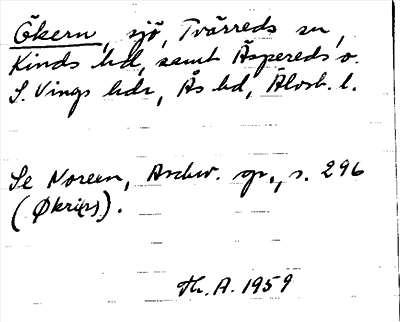 Ökern, sjö, Tvärreds sn,
Kinds hd, samt Äspereds o.
S. Vings sdr, Ås hd, Älvsb. l.
Se Noreen, Archiv. gr., s. 296
(Økri(n)).
Th. A. 1959